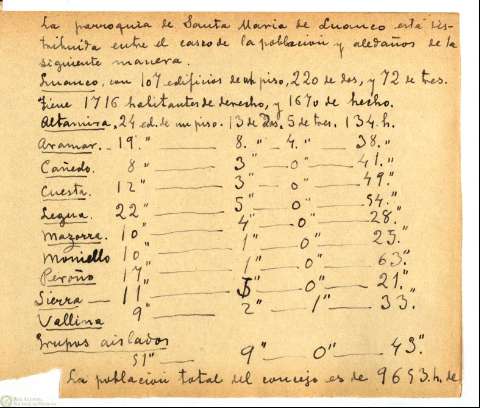 La parroquia de Santa Maria de Luanco está dis-
tribuida entre el casco de la población y aledaños de la
siguiente manera.
Luanco, con 107 edificios de un piso, 220 de dos, y 72 de tres.
Tiene 1716 habitantes de derecho, y 1670 de hecho.
Altamira, 24 ed. de un piso. 13 de dos, 5 de tres. 134 h.
Aramar. 19 " 8. " 4. " 38. "
Cañedo. 8 " 3 " 0 " 41. "
Cuesta. 12 " 3 " 0 " 49. "
Legua. 22 " 5 " 0 " 54. "
Mazorra. 10 " 4 " 0 " 28. "
Moniello 10 " 1 " 0 " 25. "
Peroño 17 " 1 " 0 " 63. "
Sierra 11 " 5 " 0 " 21. "
Vallina 9 " 2 " 1 " 33. "
Grupos aislados
51 " 9 " 0 " 43. "
La población total del concejo es de 9653. h. de